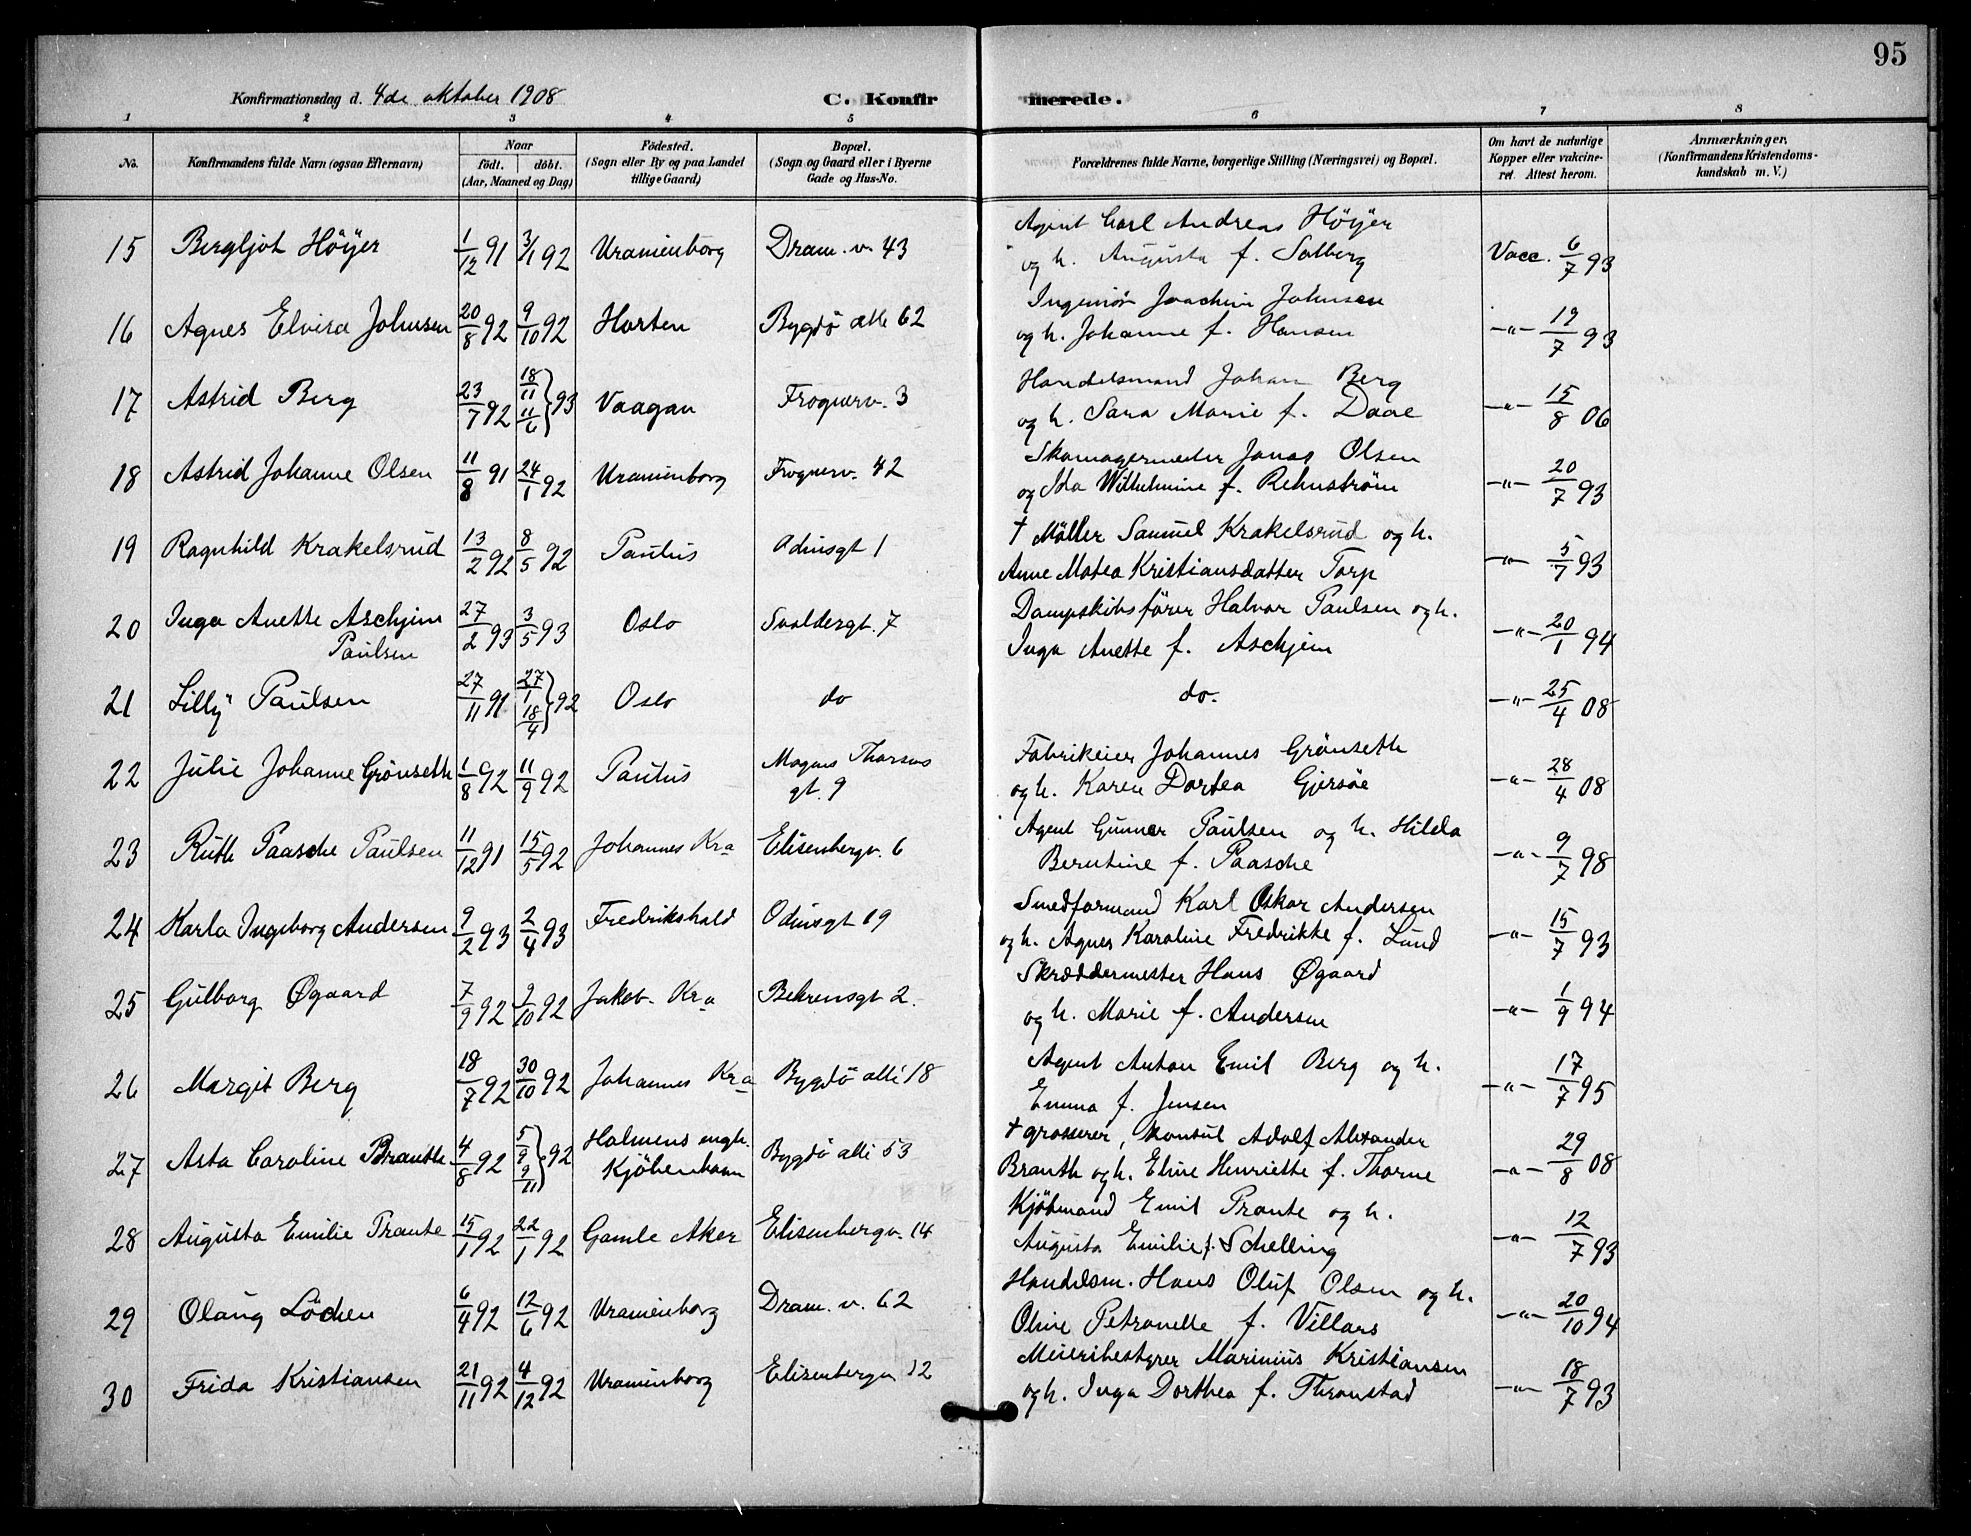 95
Konfirmationsdag d. 4de oktober 1908 C. Konfirmerede.
1 2 3 4 5 6 7 8
No. Konfirmandens fulde Navn (ogsaa Efternavn) Naar födt. döbt. (Aar, Maaned og Dag) Födested. (Sogn eller By og paa Landet tillige Gaard) Bopæl. (Sogn og Gaard eller i Byerne Gade og Hus-No. Forældrenes fulde Navne, borgerlige Stilling (Næringsvei) og Bopæl. Om havt de naturlige Kopper eller vakcineret. Attest herom. Anmærkninger. (Konfirmandens Kristendomskundskab m. V.)
15 Bergljot Höyer 1/12 91 3/1 92 Uranienborg Dram. v. 43 Agent Carl Andreas Höyer
og h. Augusta f. Solberg Vacc. 6/7 93
16 Agnes Elvira Johnsen 20/8 92 9/10 92 Horten Bygdö alle 62 Ingeniör Joachim Johnsen
og h. Johanne f. Hansen -"- 19/7 93
17 Astrid Berg 23/7 92 18/11 11/6 } 93 Vaagan Frognerv. 3 Handelsmand Johan Berg
og h. Sara Marie f. Daae -"- 15/8 06
18 Astrid Johanne Olsen 11/8 91 24/1 92 Uranienborg Frognerv. 42 Skomagermester Jonas Olsen
og Ida Wilhelmine f. Rehnström -"- 20/7 93
19 Ragnhild Krakelsrud 13/2 92 8/5 92 Paulus Odinsgt 1 † Möller Samuel Krakelsrud og h.
Anne Matea Kristiansdatter Torp -"- 5/7 93
20 Inga Anette Aschjem
Paulsen 27/2 93 3/5 93 Oslo Svoldergt. 7 Dampskibsförer Halvor Paulsen og h.
Inga Anette f. Aschjem -"- 20/1 94
21 Lilly Paulsen 27/11 91 27/1 18/4 } 92 Oslo do do. -"- 25/4 08
22 Julie Johanne Grönseth 1/8 92 11/9 92 Paulus Magnus Thorsens
gt. 9 Fabrikeier Johannes Grönseth
og h. Karen Dortea Gjersöe -"- 28/4 08
23 Ruth Paasche Paulsen 11/12 91 15/5 92 Johannes Kra Elisenbergv. 6 Agent Gunnar Paulsen og h. Hilda
Berntine f. Paasche -"- 9/7 98
24 Karla Ingeborg Andersen 9/2 93 2/4 93 Fredrikshald Odinsgt 19 Smedformand Karl Oskar Andersen
og h. Agnes Karoline Fredrikke f. Lund -"- 15/7 93
25 Gulborg Øgaard 7/9 92 9/10 92 Jakob. Kra Behrensgt 2. Skræddermester Hans Øgaard
og h. Marie f. Andersen -"- 1/9 94
26 Margit Berg 18/7 92 30/10 92 Johannes Kra Bygdö alle 18 Agent Anton Emil Berg og h.
Emma f. Jensen -"- 17/7 95
27 Asta Caroline Branth 4/8 92 5/9 9/11 } 92 Holmens mgh.
Kjöbenhavn Bygdö alle 53 † grosserer, konsul Adolf Alexander
Branth og h. Eline Henriette f. Thorne -"- 29/8 08
28 Augusta Emilie Prante 15/1 92 22/1 92 Gamle Aker Elisenbergv. 14 Kjöbmand Emil Prante og h.
Augusta Emilie f. Schelling -"- 12/7 93
29 Olaug Löchen 6/4 92 12/6 92 Uranienborg Dram. v. 62 Handelsm. Hans Oluf Olsen og h.
Oline Petronelle f. Villars -"- 20/10 94
30 Frida Kristiansen 21/11 92 4/12 92 Uranienborg Elisenbergv 12 Meieribestyrer Marinius Kristiansen
og h. Inga Dorthea f. Thronstad -"- 18/7 93